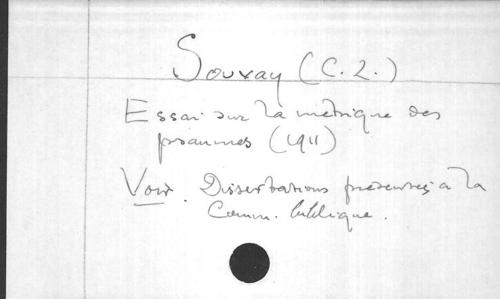 Souvay (C. L.)
Essai sur la métrique des
psaumes (1911)
Voir. Dissertations présentées à la
Comm. biblique.